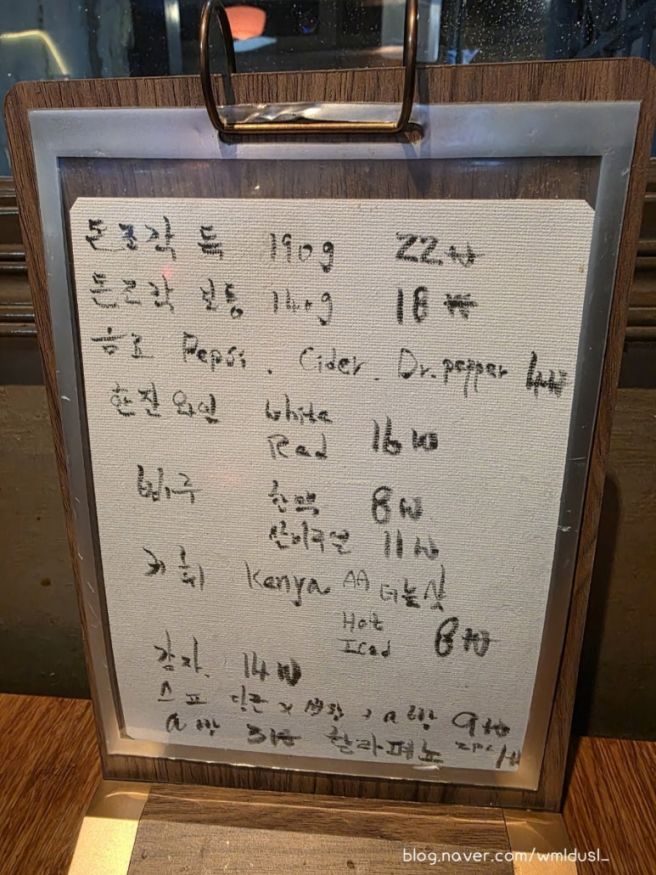 돈조각 특 190g 22₩
돈조각 보통 140g 18₩
음료 Pepsi. Cider. Dr.pepper 4₩
한잔와인 White
Red 16₩
맥주 8₩
11₩
커피 Kenya AA 더블샷
Hot
Iced 8₩
감자. 14₩
스프 당근 x 생강 9₩
빵 3₩ 할라페뇨 2pc/₩
blog.naver.com/wmldusl_